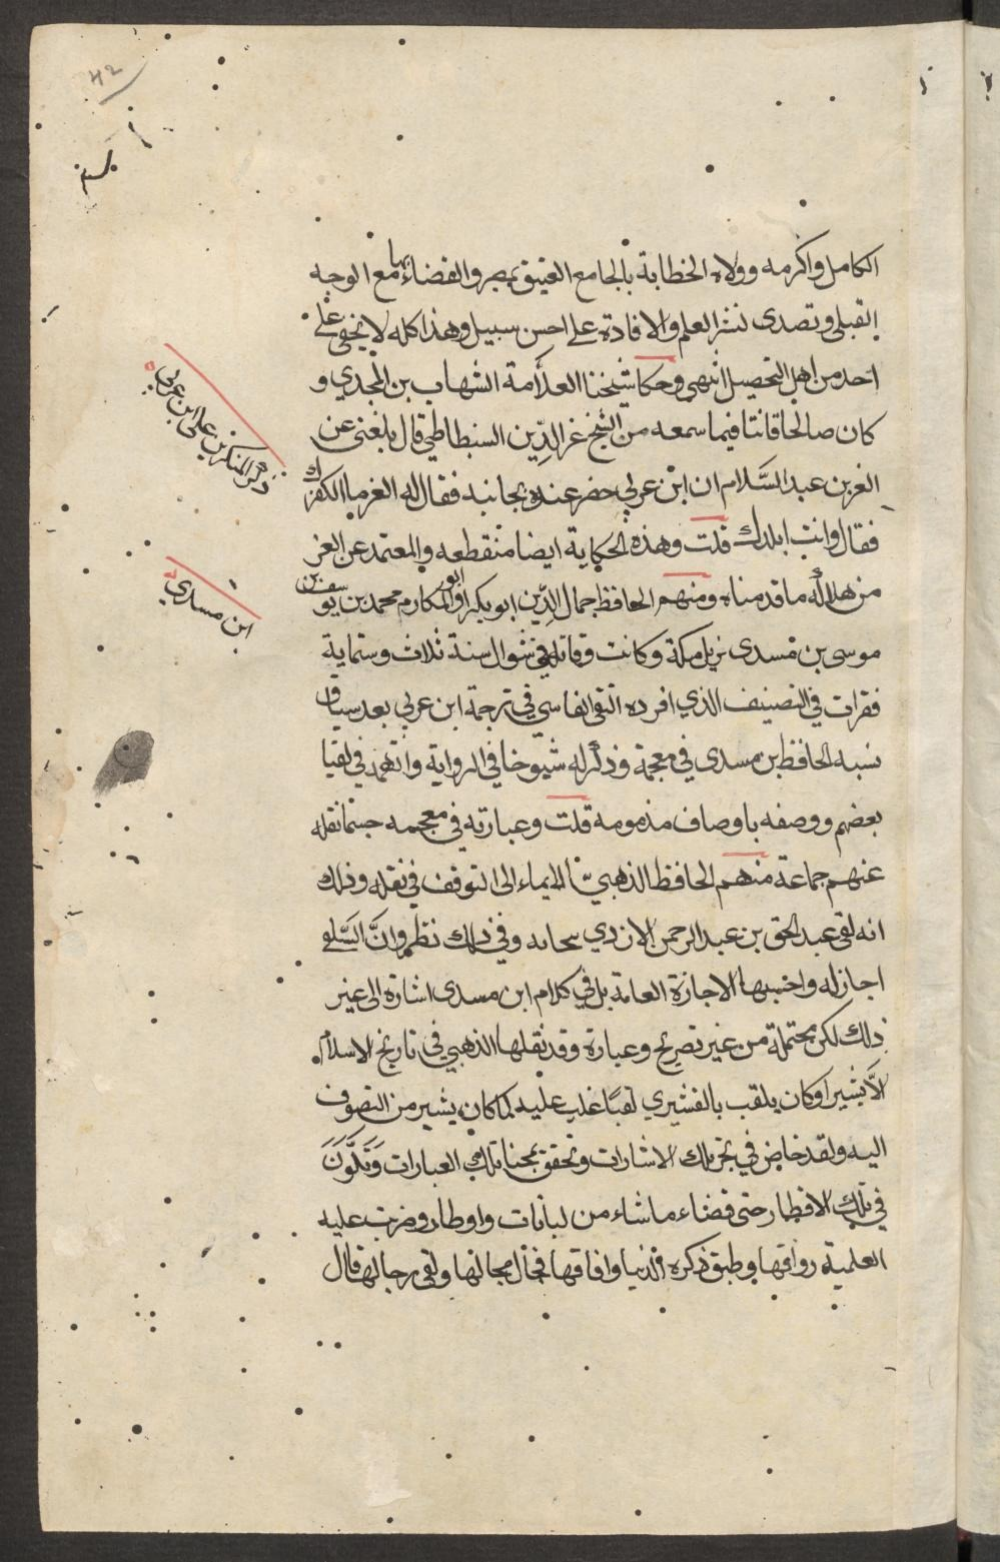 ٤٢
الكامل واكرمه وولاه الخطابة بالجامع العتيق بمصر والقضاء بها مع الوجه
القبلي وتصدى لنشر العلم والافادة على احسن سبيل وهذا كله لا يخفى على
احد من اهل التحصيل انتهى وحكا شيخنا العلّامة الشهاب بن المجدي و
كان صالحا قانتا فيما سمعه من الشيخ عز الدّين السنطاطي قال بلغني عن
العز بن عبد السّلام ان ابن عربي حضر عنده بجانبه فقال له العز ما اكفرك
فقال وانت ابلدك قلت وهذه الحكاية ايضا منقطعه والمعتمد عن العز
من هذا كله ما قدمناه ومنهم الحافظ جمال الدّين ابو بكر او ابو المكارم محمد بن يوسف بن
موسى بن مسدى نزيل مكة وكانت وفاته في شوال سنة ثلاث وستماية
فقرات في التصنيف الذي افرده التقى الفاسي في ترجمة ابن عربي بعد سياق
نسبه الحافظ بن مسدى في معجمة وذكر له شيوخا في الرواية واتهمه في لقيا
بعضهم ووصفه باوصاف مذمومة قلت وعبارته في معجمه حسبما نقله
عنهم جماعة منهم الحافظ الذهبي الايماء الى التوقف في نقله وذلك
انه لقى عبد الحق بن عبد الرحمن الازدي سحابه وفي ذلك نظر وانّ السّلفي
اجاز له واحسبها الاجازة العامة بل في كلام ابن مسدى اشارة الى غير
ذلك لكن محتملة من غير تصريح وعبارة وقد نقلها الذهبي في تاريخ الاسلام
الّا يسيرا وكان يلقب بالقشيري لقبًا غلب عليه لما كان يشير من التصوف
اليه ولقد خاض في بحر تلك الاشارات وتحقق بمحيا تلك العبارات وتكوّن
في تلك الاقطار حتى قضاء ما شاء من لبانات واوطار وضربت عليه
العلمية رواقها وطبق ذكره الدنيا وافاقها فجال مجالها ولقى رجالها قال
ذكر المنكرين على ابن عربي
ابن مسدي